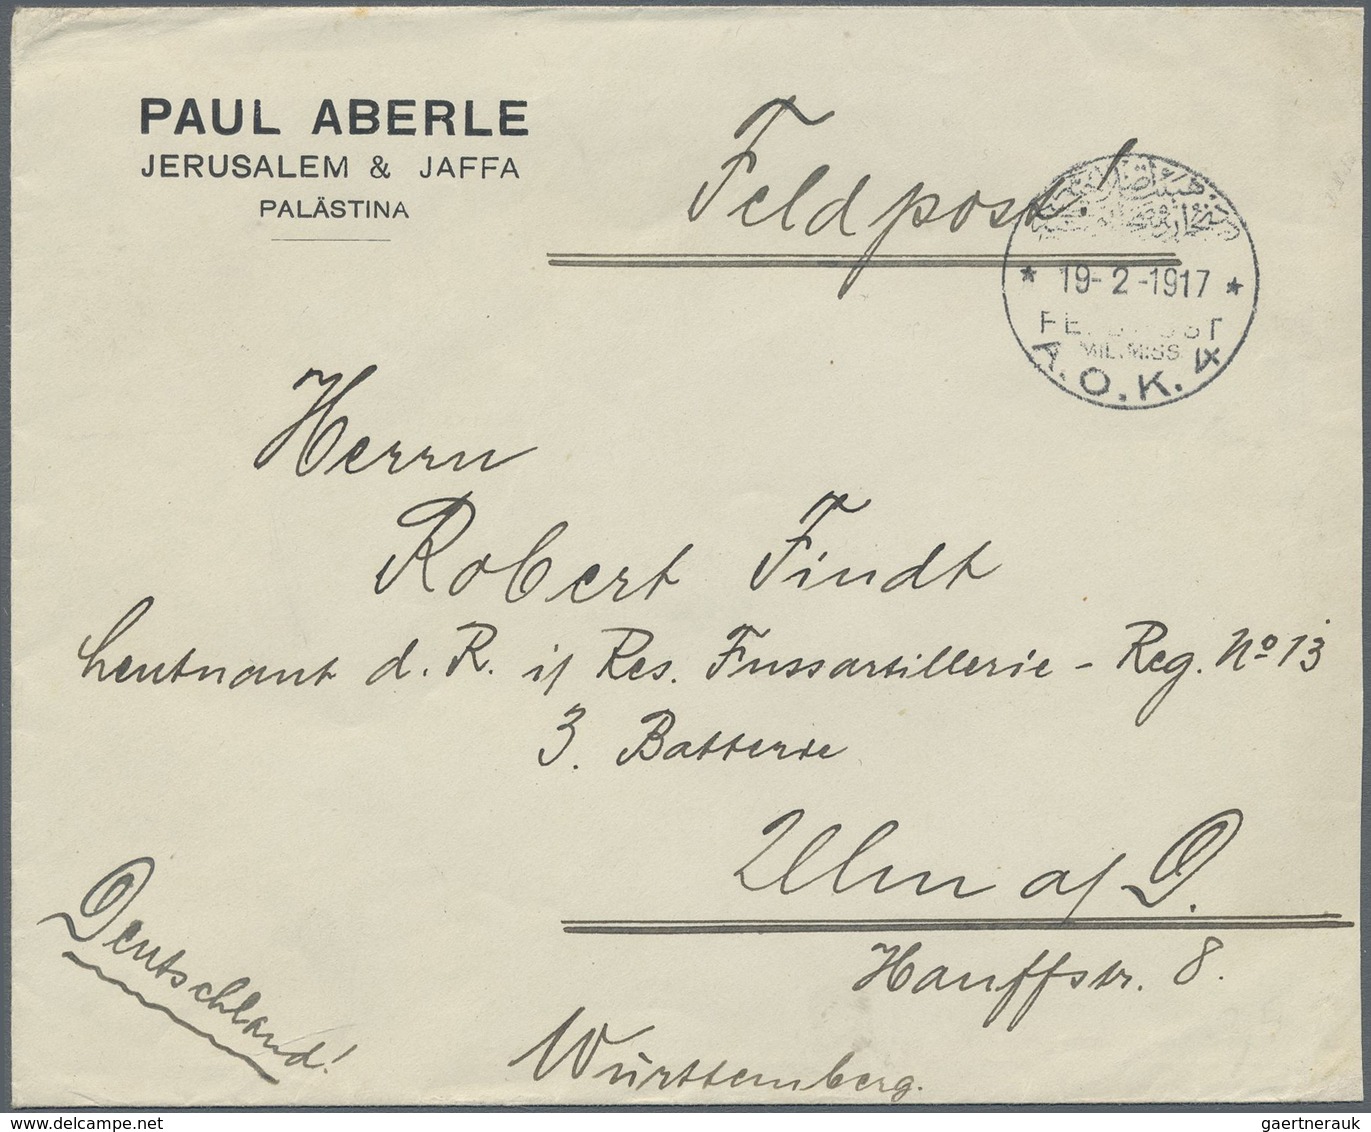 PAUL ABERLE
JERUSALEM & JAFFA
PALÄSTINA
Feldpost!
* 19-2-1917 *
FELDPOST
MIL. MISS.
A.O.K. 4
Herrn
Robert Findt
Leutnant d. R. i/ Res. Fussartillerie - Reg. No 13
3. Batterie
Ulm a/ D.
Hauffstr. 8.
Württemberg.
Deutschland!
www.delcampe.net
gaertnerauk